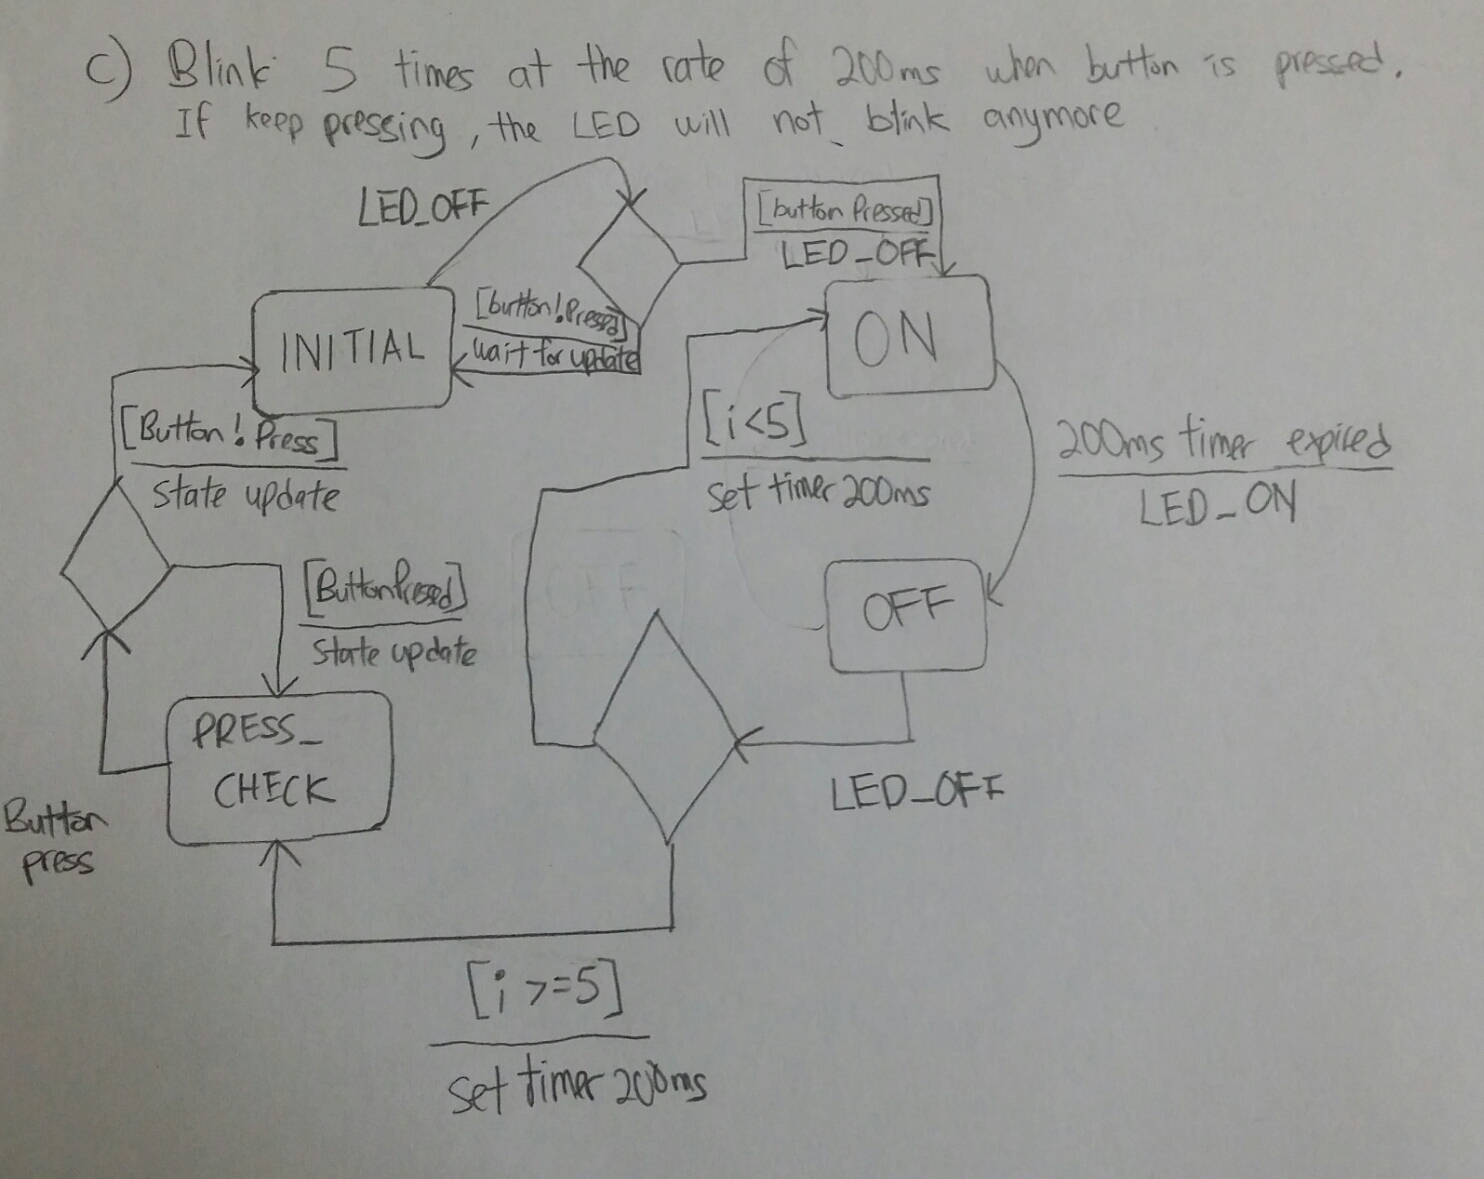 c) Blink 5 times at the rate of 200ms when button is pressed.
If keep pressing, the LED will not blink anymore
LED_OFF
[button Pressed]
LED_OFF
[button!Pressed]
wait for update
INITIAL
ON
[Button! Press]
State update
[i<5]
set timer 200ms
200ms timer expired
LED_ON
[ButtonPressed]
State update
OFF
OFF
PRESS_
CHECK
LED_OFF
Button
press
[i >=5]
set timer 200ms